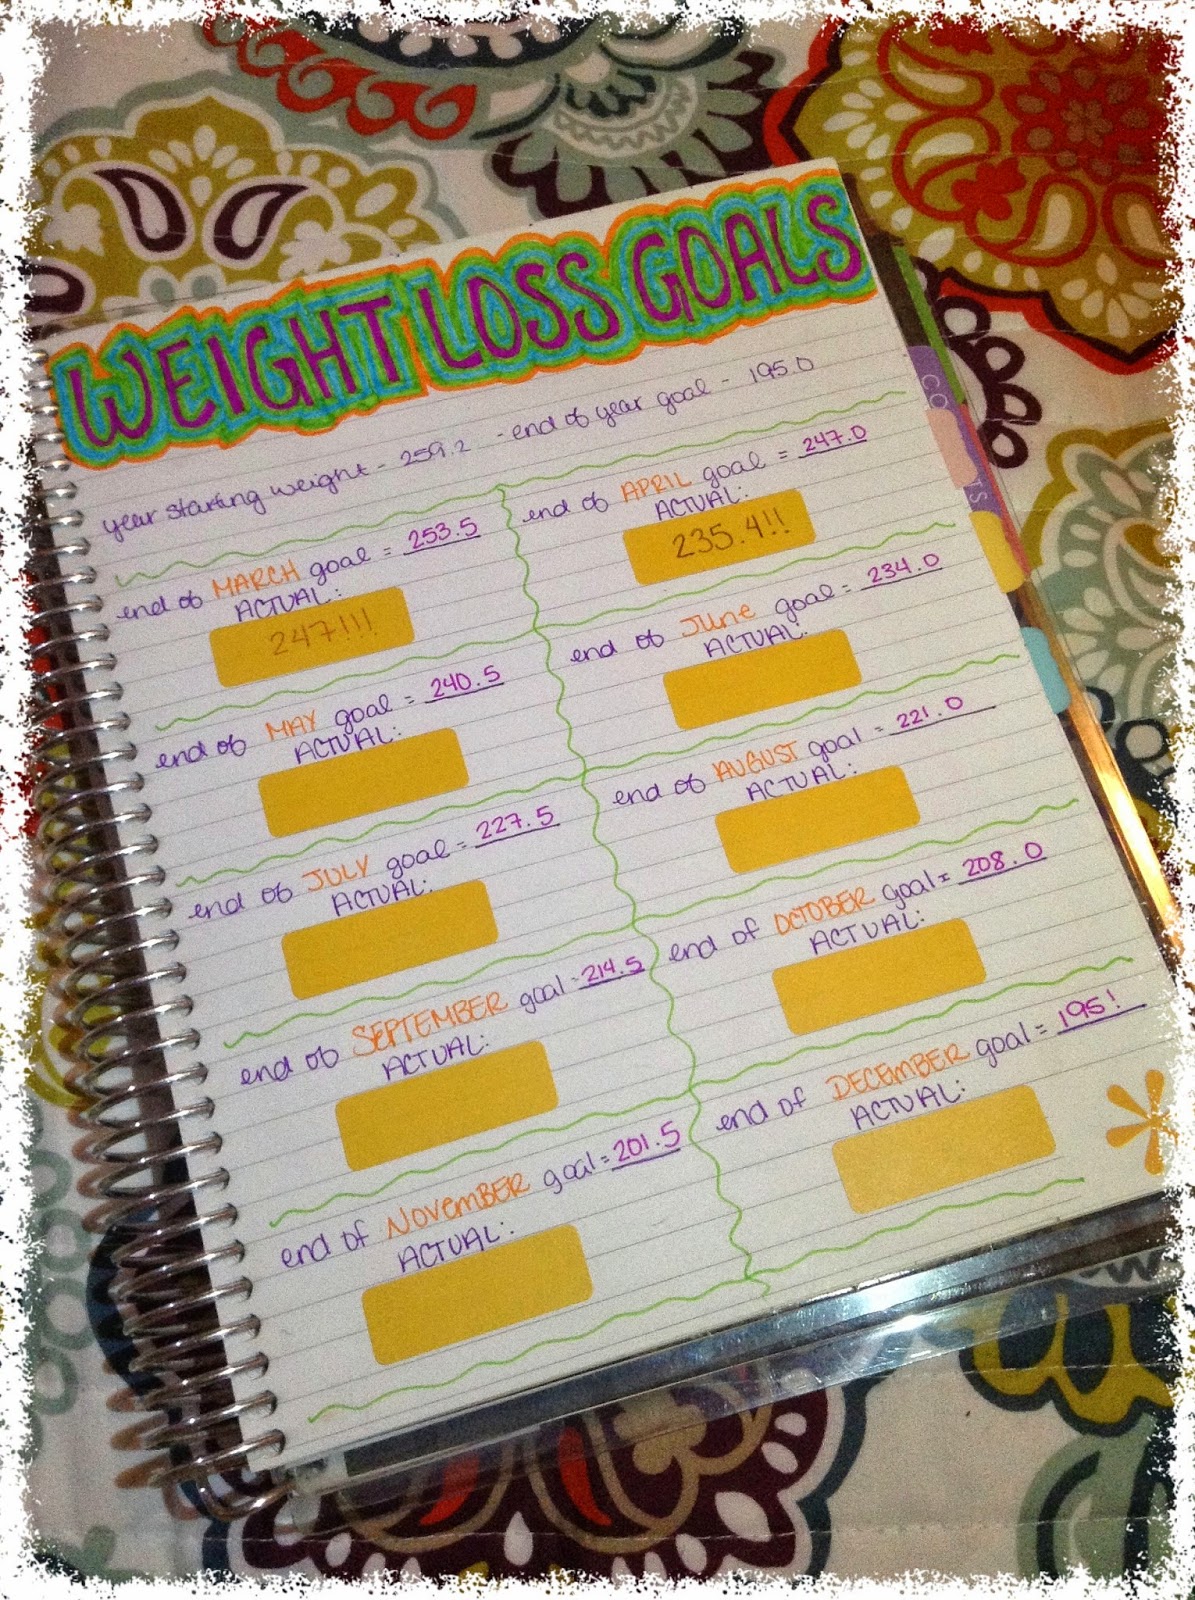 WEIGHT LOSS GOALS
year starting weight - 259.2 - end of year goal - 195.0
end of MARCH goal = 253.5
ACTUAL:
247!!!
end of APRIL goal = 247.0
ACTUAL:
235.4!!
end of MAY goal = 240.5
ACTUAL:
end of June goal = 234.0
ACTUAL:
end of JULY goal = 227.5
ACTUAL:
end of AUGUST goal = 221.0
ACTUAL:
end of SEPTEMBER goal = 214.5
ACTUAL:
end of OCTOBER goal = 208.0
ACTUAL:
end of NOVEMBER goal = 201.5
ACTUAL:
end of DECEMBER goal = 195!
ACTUAL: